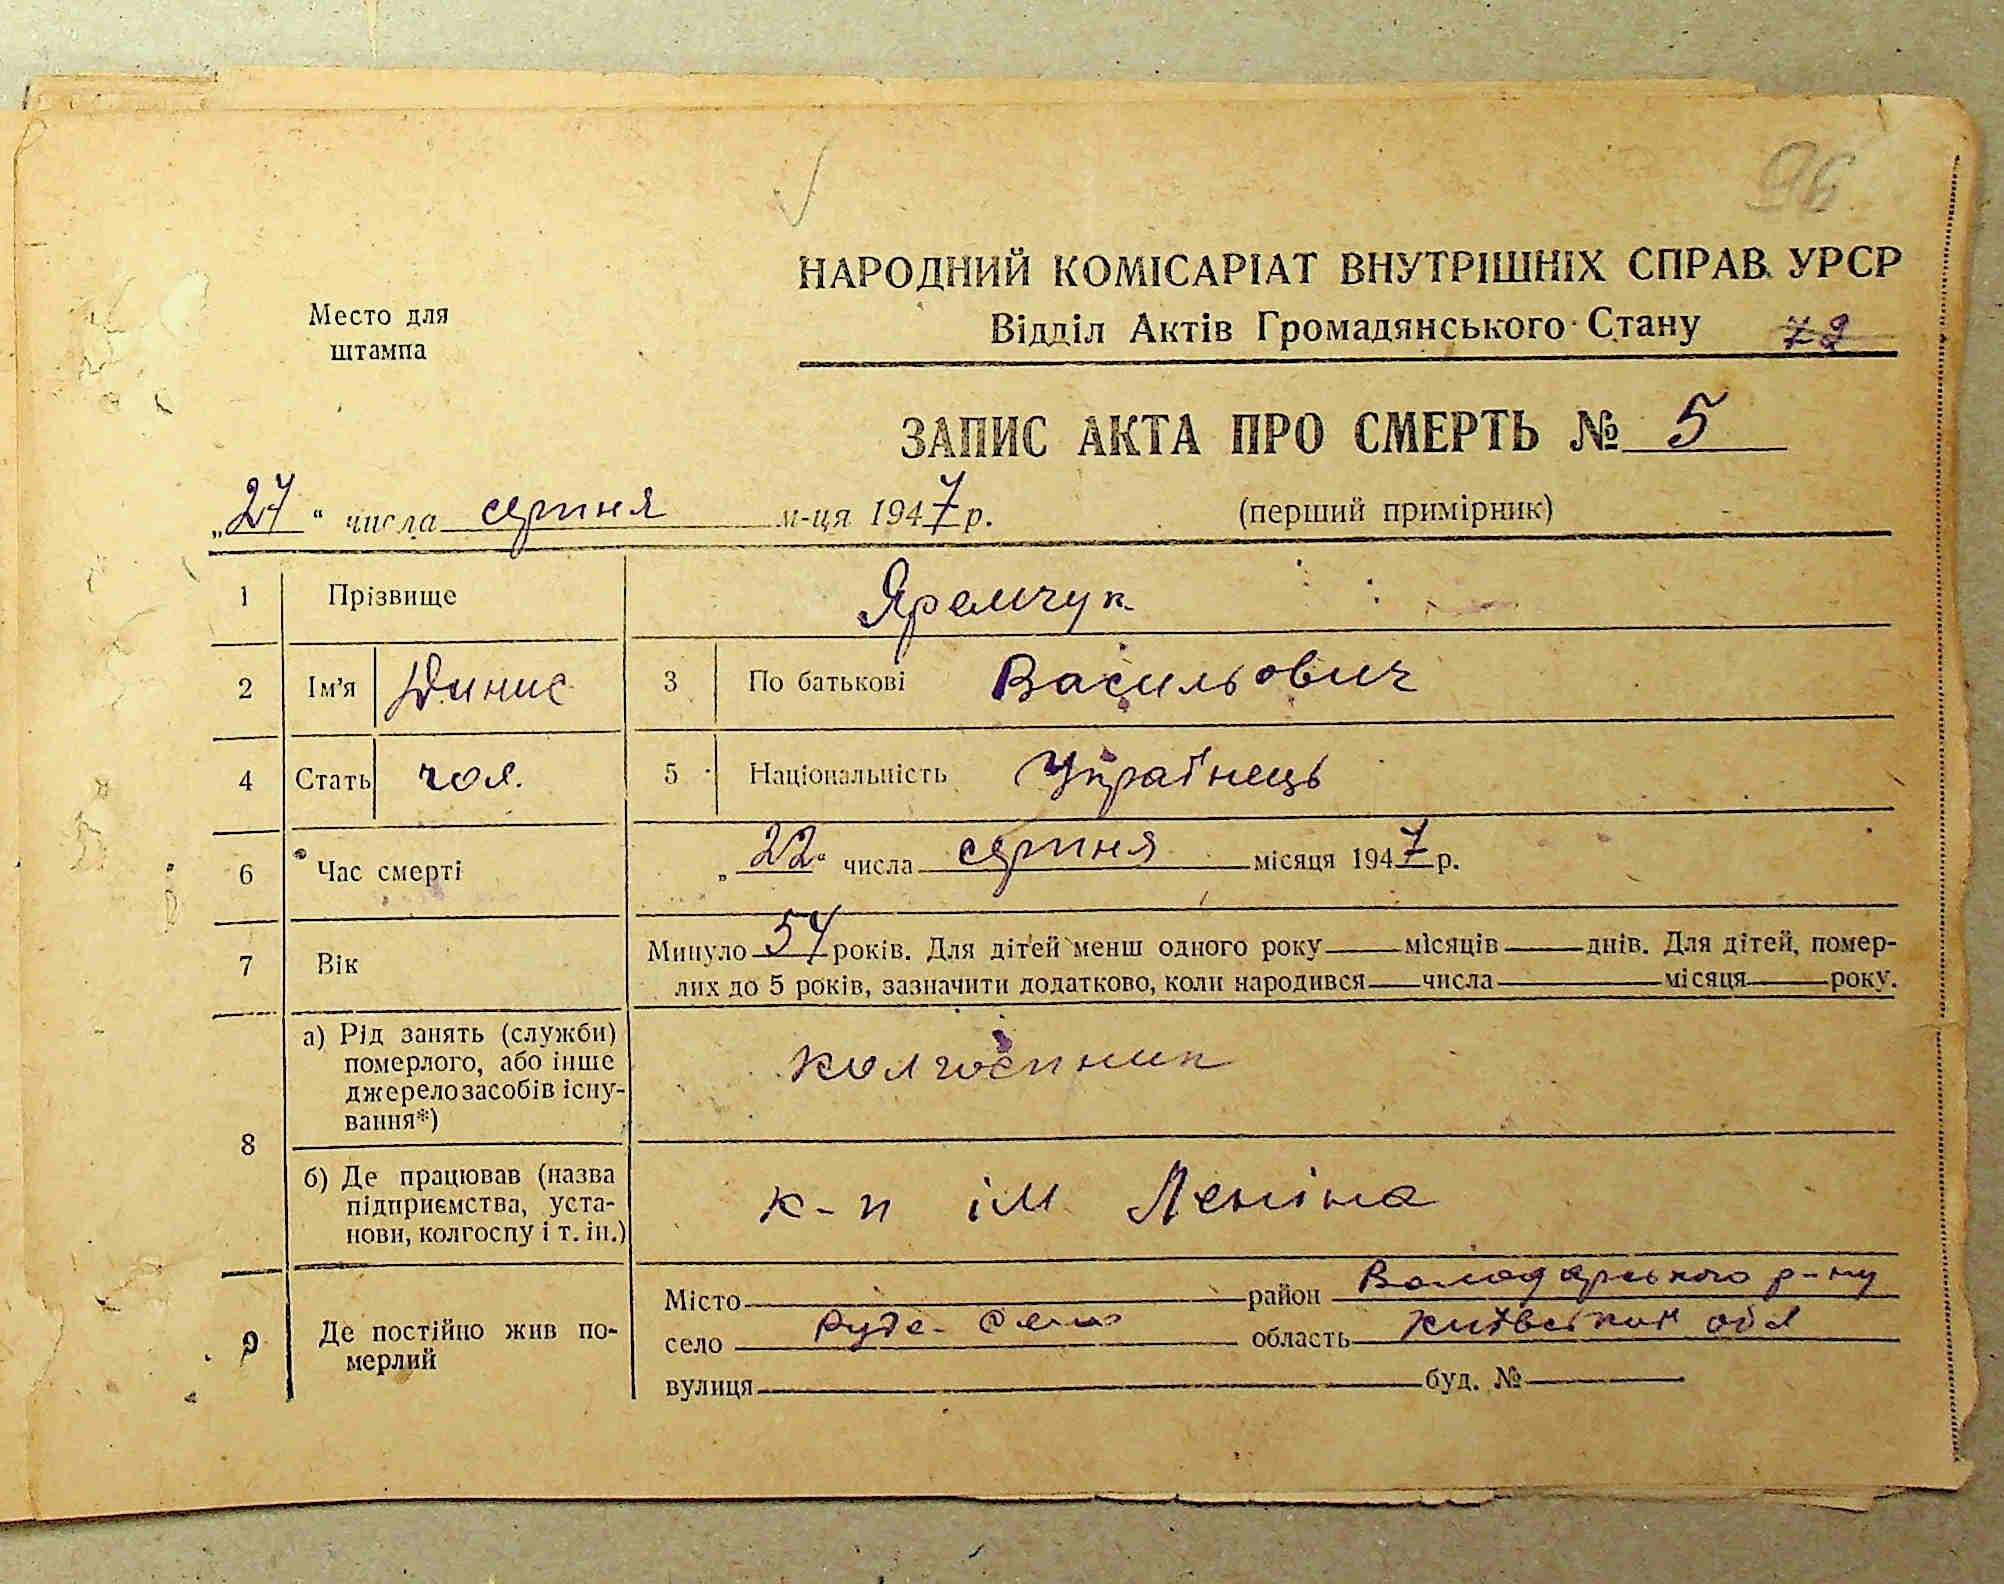 96
НАРОДНИЙ КОМІСАРІАТ ВНУТРІШНІХ СПРАВ УРСР
Место для
штампа
Відділ Актів Громадянського Стану 79
ЗАПИС АКТА ПРО СМЕРТЬ № 5
„27“ числа серпня м-ця 1947 р. (перший примірник)
1 Прізвище Яремчук
2 Ім'я Динис 3 По батькові Васильович
4 Стать чол. 5 Національність Українець
6 Час смерті „22“ числа серпня місяця 1947 р.
7 Вік Минуло 54 років. Для дітей менш одного року — місяців — днів. Для дітей, помер-
лих до 5 років, зазначити додатково, коли народився — числа — місяця — року.
8 а) Рід занять (служби)
померлого, або інше
джерело засобів існу-
вання*)
колгоспник
б) Де працював (назва
підприємства, уста-
нови, колгоспу і т. ін.)
к-п ім Леніна
9 Де постійно жив по-
мерлий
Місто — район Володарського р-ну
село Руде-Село область Київський обл
вулиця — буд. № —